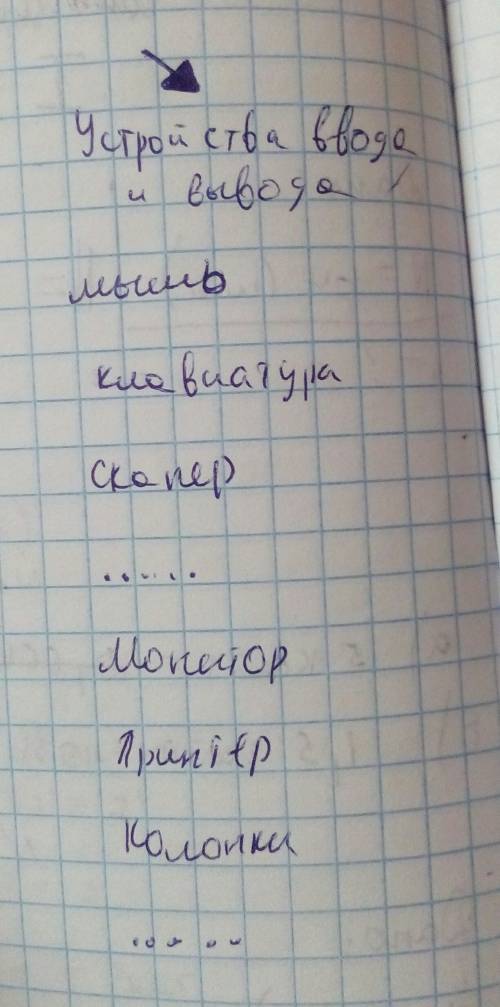 Устройства ввода
и вывода
мышь
клавиатура
сканер
......
Монитор
Принтер
Колонки
......